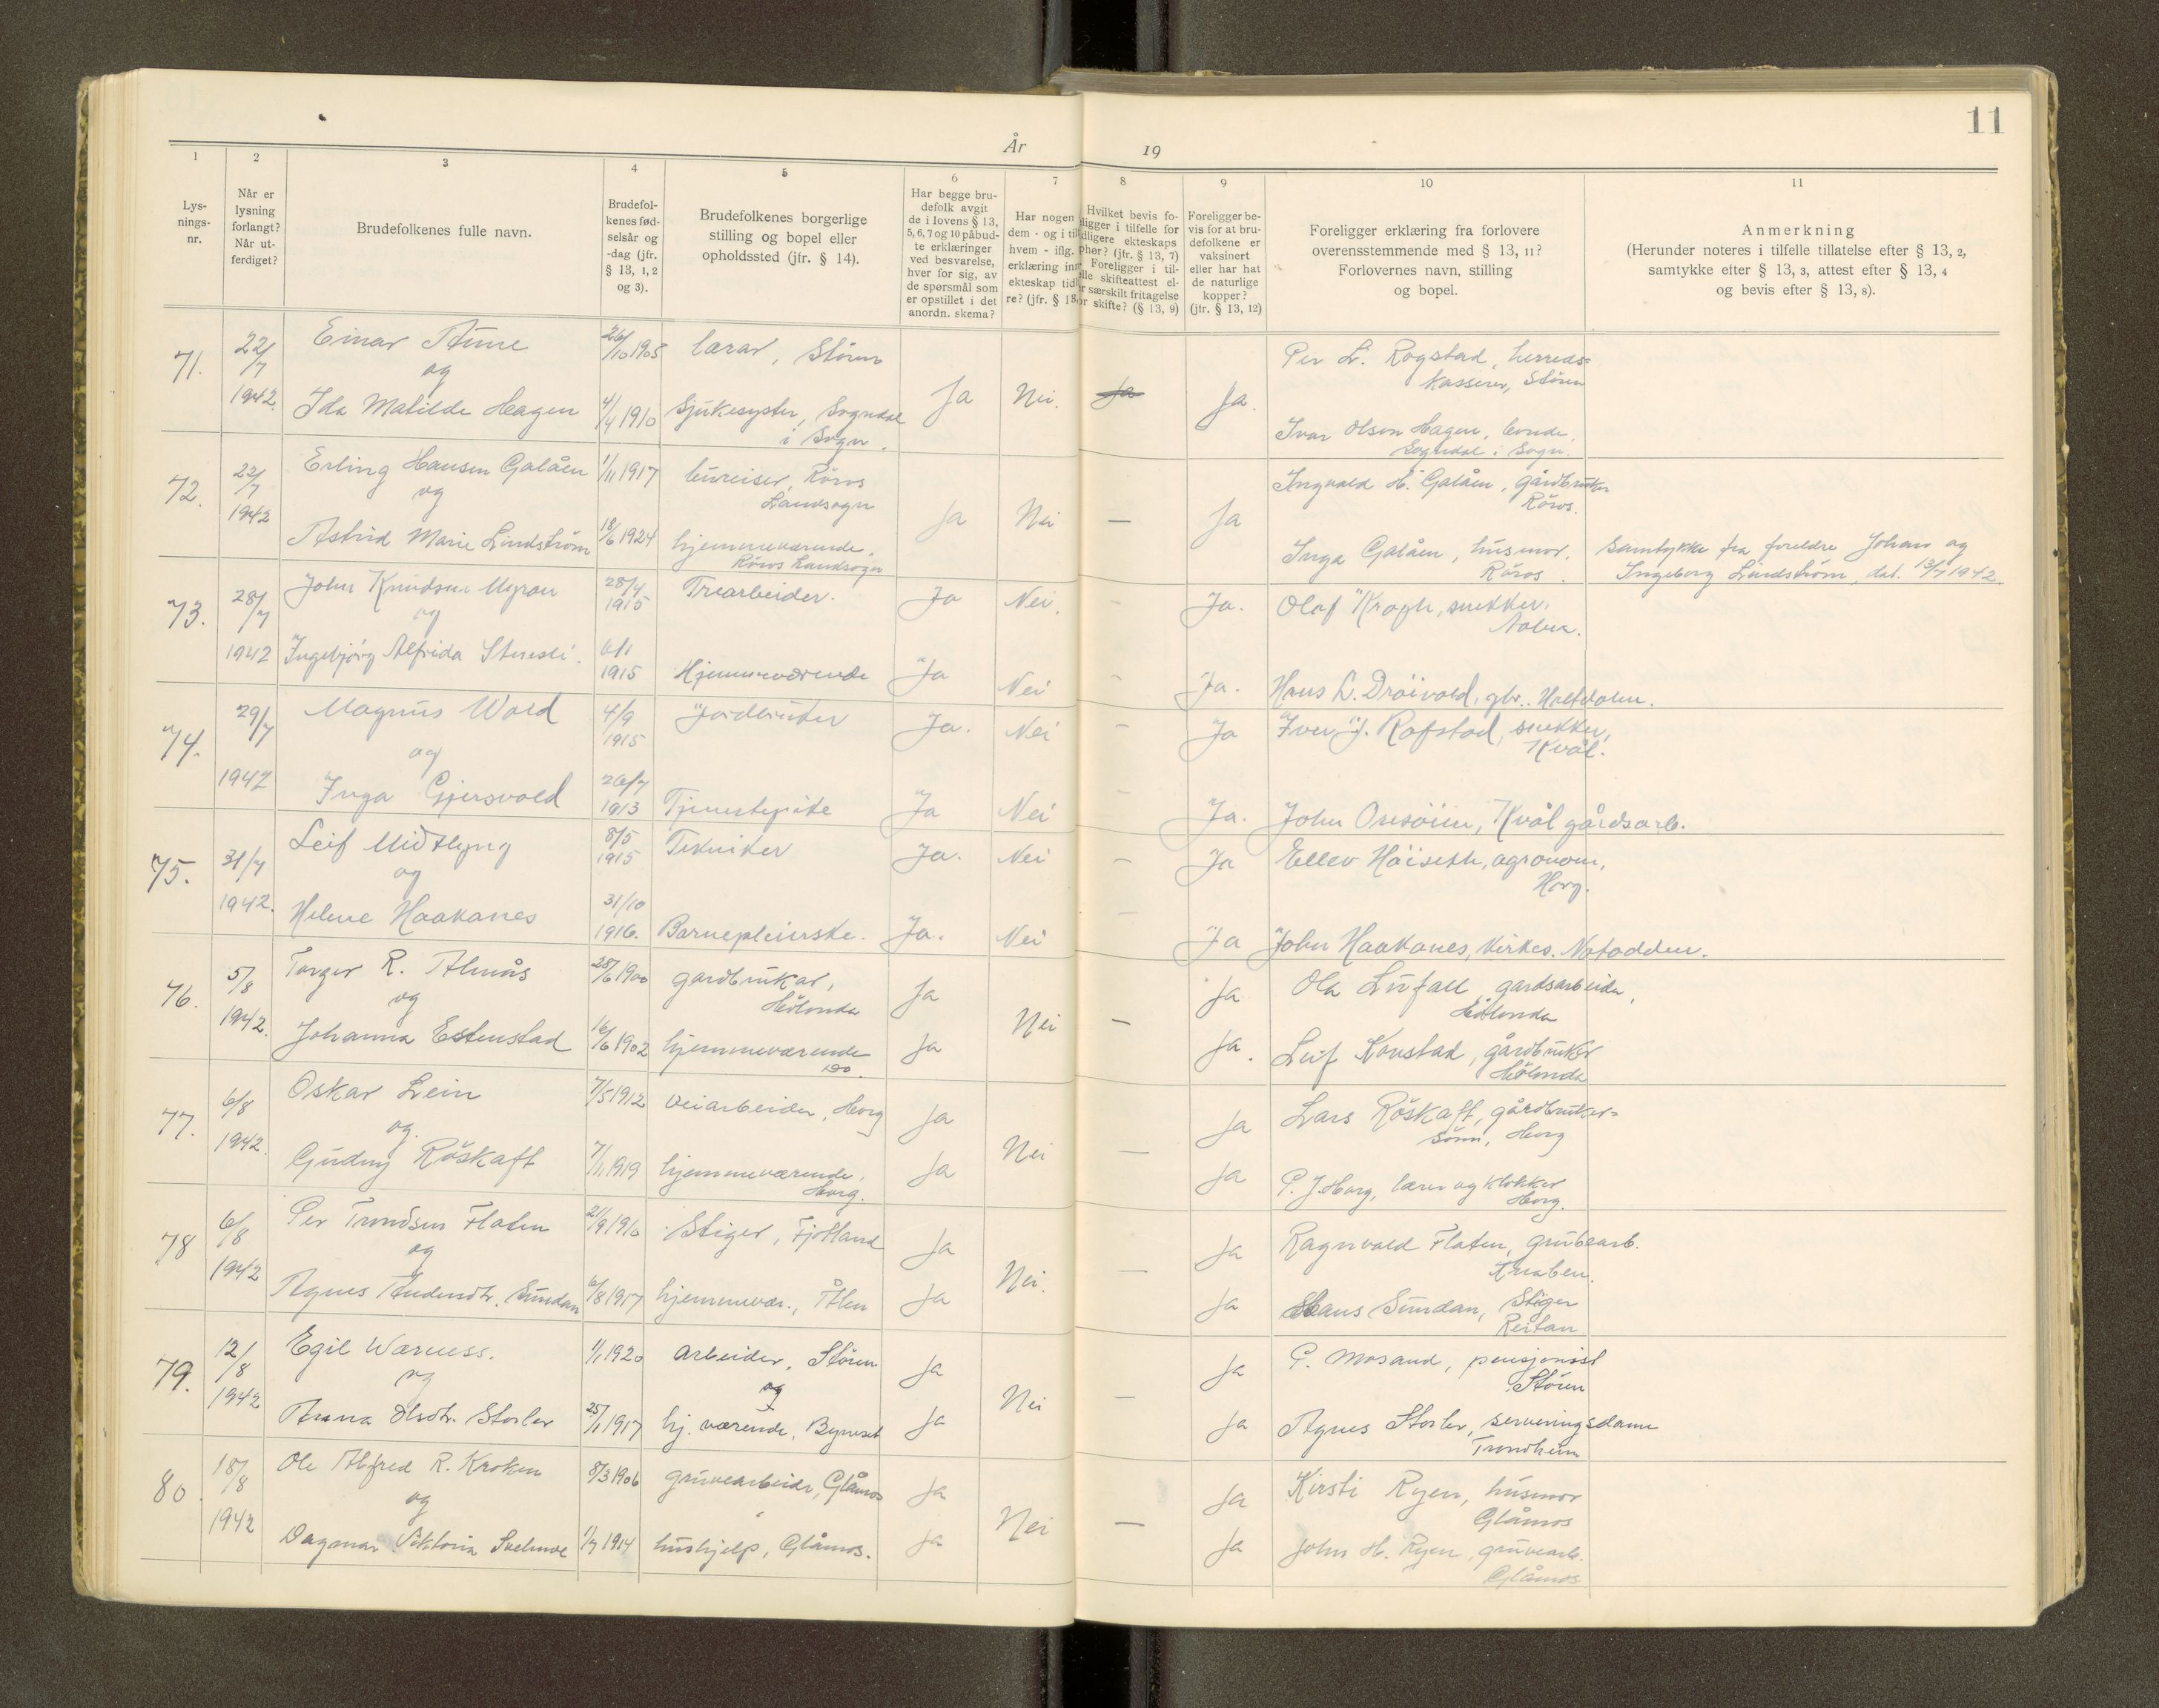 11
År 19
1 2 3 4 5 6 7 8 9 10 11
Lys-
nings-
nr.
Når er
lysning
forlangt?
Når ut-
ferdiget?
Brudefolkenes fulle navn.
Brudefol-
kenes fød-
selsår og
-dag (jfr.
§ 13, 1, 2
og 3).
Brudefolkenes borgerlige
stilling og bopel eller
opholdssted (jfr. § 14).
Har begge bru-
defolk avgit
de i lovens § 13,
5, 6, 7 og 10 påbud-
te erklæringer
ved besvarelse,
hver for sig, av
de spørsmål som
er opstillet i det
anordn. skema?
Har nogen
dem - og i til
hvem - iflg.
erklæring inn
ekteskap tid
re? (jfr. § 13
Hvilket bevis fo-
religger i tilfelle for
tidligere ekteskaps
ophør? (jfr. § 13, 7)
Foreligger i til-
felle skifteattest el-
er særskilt fritagelse
for skifte? (§ 13, 9)
Foreligger be-
vis for at bru-
defolkene er
vaksinert
eller har hat
de naturlige
kopper?
(jfr. § 13, 12)
Foreligger erklæring fra forlovere
overensstemmende med § 13, 11?
Forlovernes navn, stilling
og bopel.
Anmerkning
(Herunder noteres i tilfelle tillatelse efter § 13, 2,
samtykke efter § 13, 3, attest efter § 13, 4
og bevis efter § 13, 8).
71. 22/7 Einar Aune 26/10 1905 lærar, Stören Per L. Rogstad, herreds=
og kasserer, Stören
1942. Ida Matilde Hagen 4/4 1910 Sjukesyster, Sogndal Ja Nei. Ja Ja. Ivar Olsen Hagen, bonde,
i Sogn. Sogndal i Sogn.
72. 22/7 Erling Hansen Galåen 1/11 1917 bureiser, Röros Ingvald H. Galåen, gårdbruker
og Landsogn Röros.
1942 Astrid Marie Lindström 18/6 1924 hjemmeværende, Ja Nei — Ja Inga Galåen, husmor, Samtykke fra foreldre Johan og
Röros Landsogn Röros. Ingeborg Lindström, dat. 13/7 1942.
73. 28/7 John Knudsen Myran 28/4 1915 Trearbeider. Ja Nei. - Ja. Olaf Krogh, snekker,
og
1942 Ingebjörg Alfrida 1915 Hjemmeværende Ja Nei - Ja. Hans L. Dröivold, gbr. Holtdalen.
74. 29/7 Magnus Wold 4/9 1915 Jordbruker Ja. Nei - Ja Iver J. Rofstad, snekker,
og Kvål.
1942 Inga Gjersvold 26/7 1913 Tjenestepike Ja Nei - Ja. John Onsöien, Kvål gårdsarb.
75. 31/7 Leif Midtlyng 8/5 1915 Tekniker Ja. Nei - Ja Ellev Höiseth, agronom,
og Horg.
1942. Helene Haakanes 31/10 1916. Barnepleierske. Ja. Nei - Ja John Haakanes, kirkes. Notodden.
76. 5/8 Torger R. Almås 28/6 1900 gardbrukar, Ja Ja Ola Lufall, gardsarbeider,
og Hölonda Nei — Hölonda
1942. Johanna Estenstad 16/6 1902 hjemmeværende Ja Ja. Leif Konstad, gårdbruker
do. Hölonda
77. 6/8 Oskar Lein 7/5 1912 veiarbeider, Horg Ja Ja Lars Röskaft, gårdbruker=
og. Nei — sönn, Horg
1942. Gudny Röskaft 7/11 1919 hjemmeværende, Ja Ja P. J. Horg, lærer og klokker
Horg. Horg.
78 6/8 Per Trondsen Flaten 21/9 1910 Stiger, Fjotland Ja Ja Ragnvald Flaten, grubearb.
og Nei. — Knaben.
1942 Agnes Andersdtr. Sundan 6/8 1917 hjemmevær., Ålen Ja Ja Hans Sundan, Stiger
Reitan
79. 12/8 Egil Warness. 1/1 1920 arbeider, Stören Ja Ja P. Mosand, pensjonist
og og Nei — Stören
1942 Anna Olsdtr. Storler 25/1 1917 hj. værende, Byneset Ja Ja Agnes Storler, serveringsdame
Trondheim
80. 18/8 Ole Alfred R. Kroken 8/3 1906 gruvearbeider, Glåmos Ja Ja Kirsti Ryen, husmor
og Nei — Glåmos
1942 Dagmar Viktoria 1/7 1914 hushjelp, Glåmos. Ja Ja John H. Ryen, gruvearb.
Glåmos